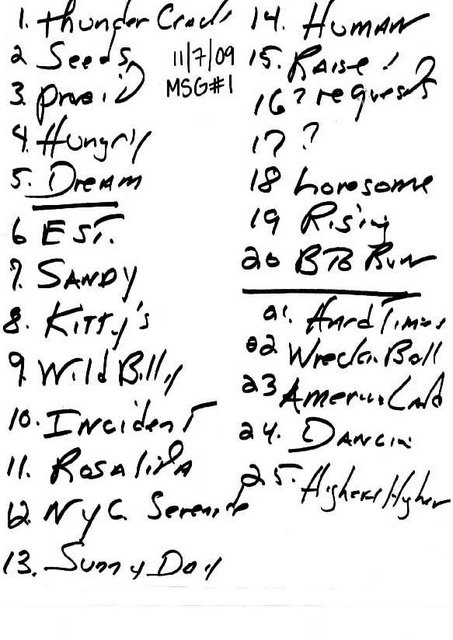 1. Thunder Crack
2 Seeds
3. Prove it
4. Hungry
5. Dream
6 E ST.
7. SANDY
8. Kitty's
9. Wild Billy
10. Incident
11. Rosalita
12. NYC Serenade
13. Sunny Day
11/7/09
MSG#1
14. Human
15. Raise!
16? requests
17?
18 Lonesome
19 Rising
20 B To Run
21. Hard Times
22 Wreckin Ball
23 American Land
24. Dancin
25. Higher & Higher